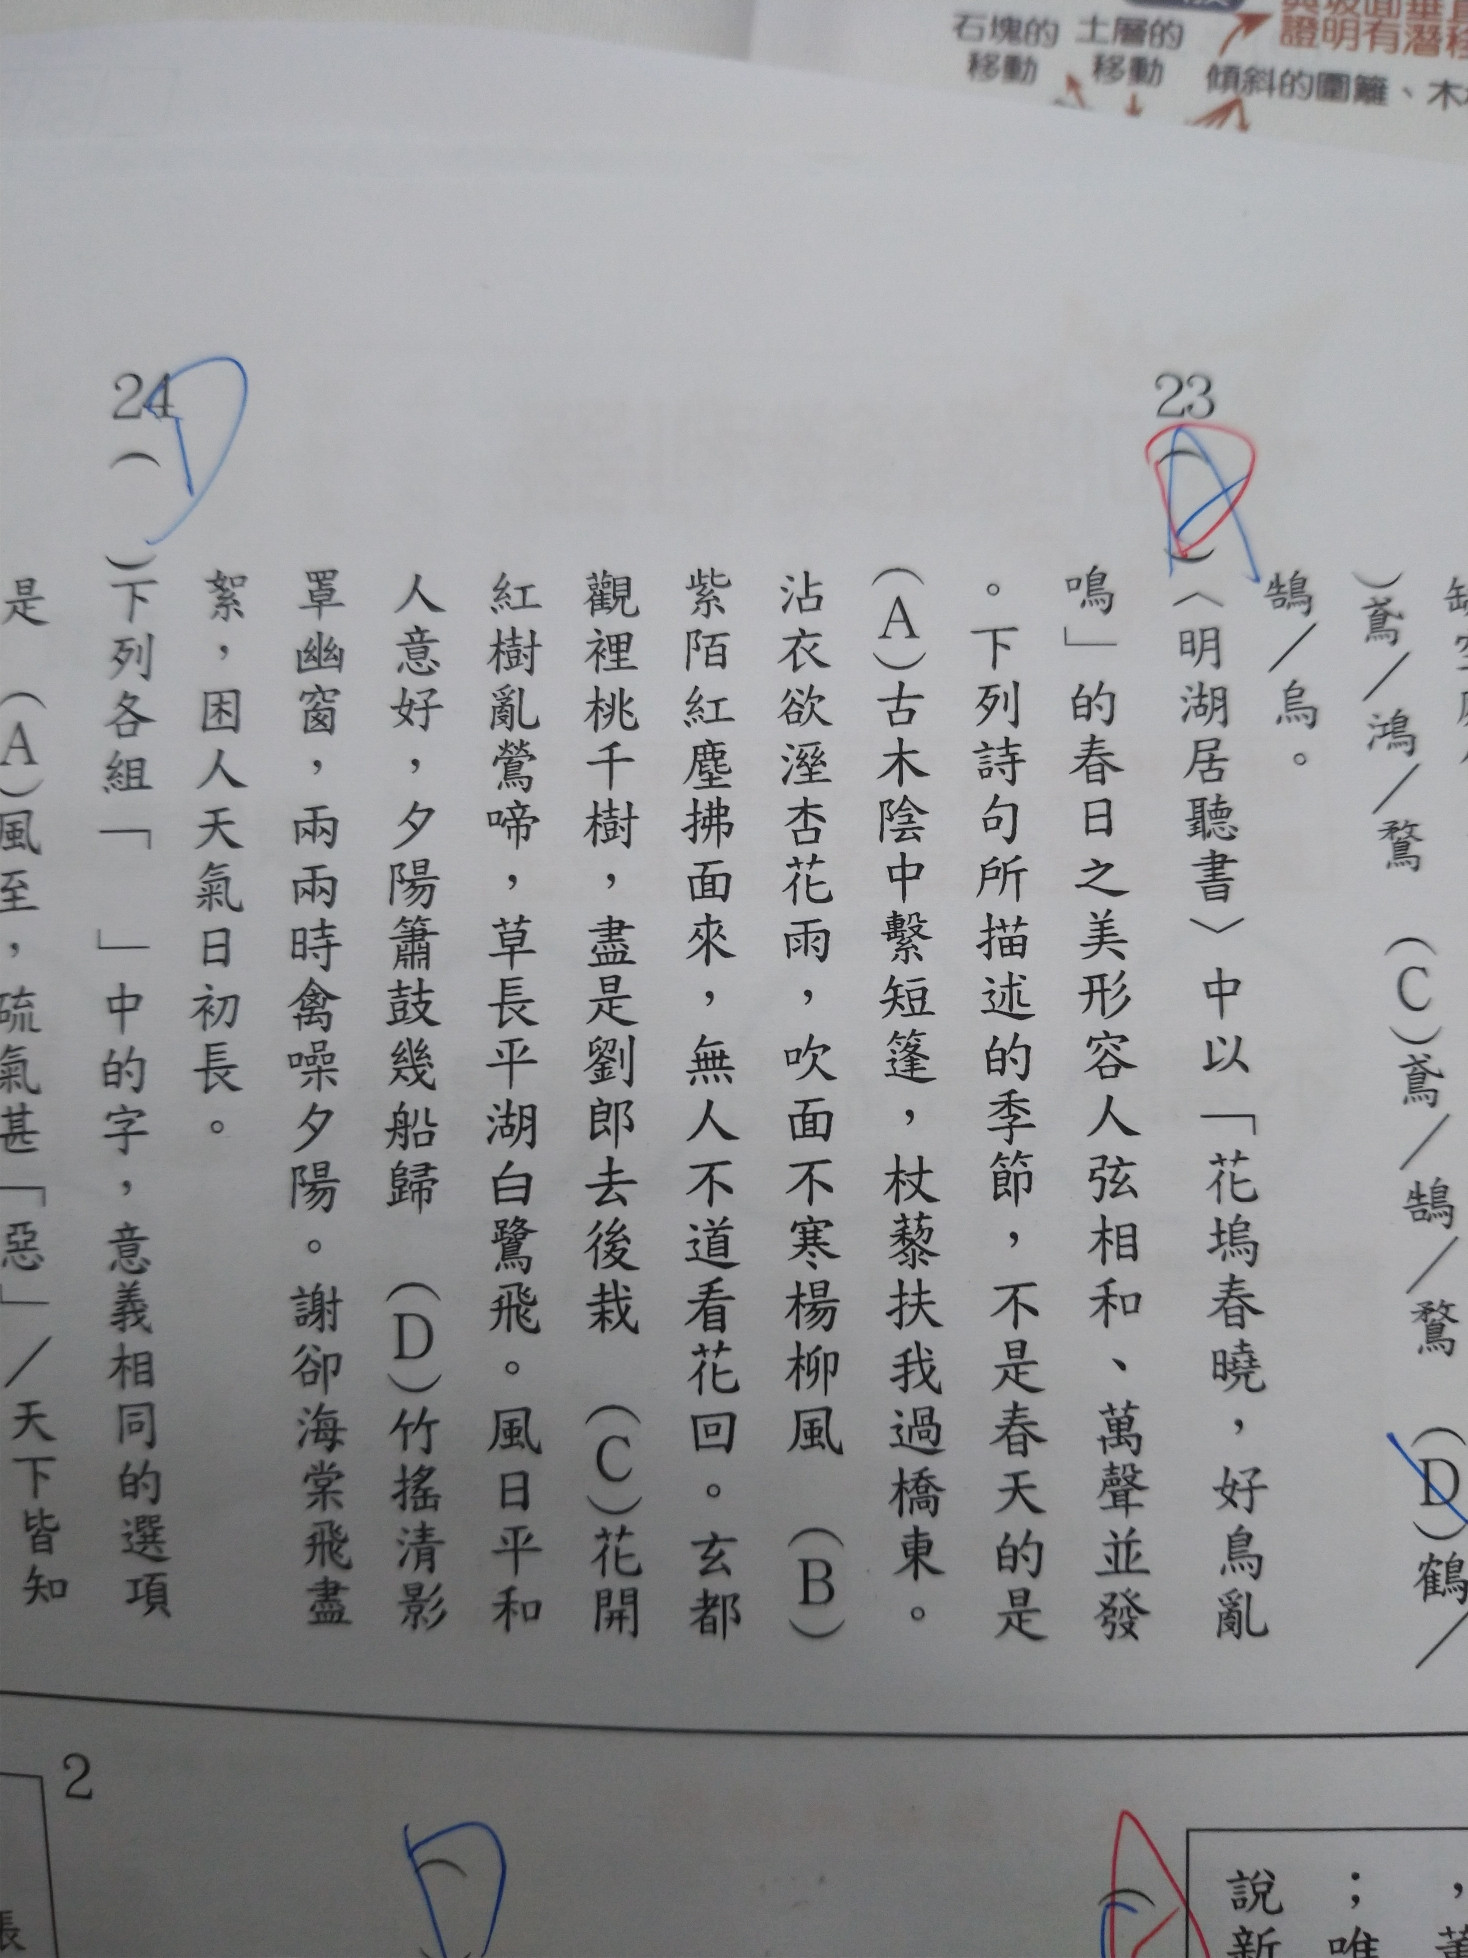 石塊的移動
土層的移動
證明有潛移
傾斜的圍籬、木
)鳶/鴻/鶩 (C)鳶/鵠/鶩 (D)鶴/
鵠/烏。
23( )〈明湖居聽書〉中以「花塢春曉,好鳥亂
鳴」的春日之美形容人弦相和、萬聲並發
。下列詩句所描述的季節,不是春天的是
(A)古木陰中繫短篷,杖藜扶我過橋東。
沾衣欲溼杏花雨,吹面不寒楊柳風 (B)
紫陌紅塵拂面來,無人不道看花回。玄都
觀裡桃千樹,盡是劉郎去後栽 (C)花開
紅樹亂鶯啼,草長平湖白鷺飛。風日平和
人意好,夕陽簫鼓幾船歸 (D)竹搖清影
罩幽窗,兩兩時禽噪夕陽。謝卻海棠飛盡
絮,困人天氣日初長。
24( )下列各組「 」中的字,意義相同的選項
是 (A)風至,硫氣甚「惡」/天下皆知
D
D
2
D
說
;唯
,